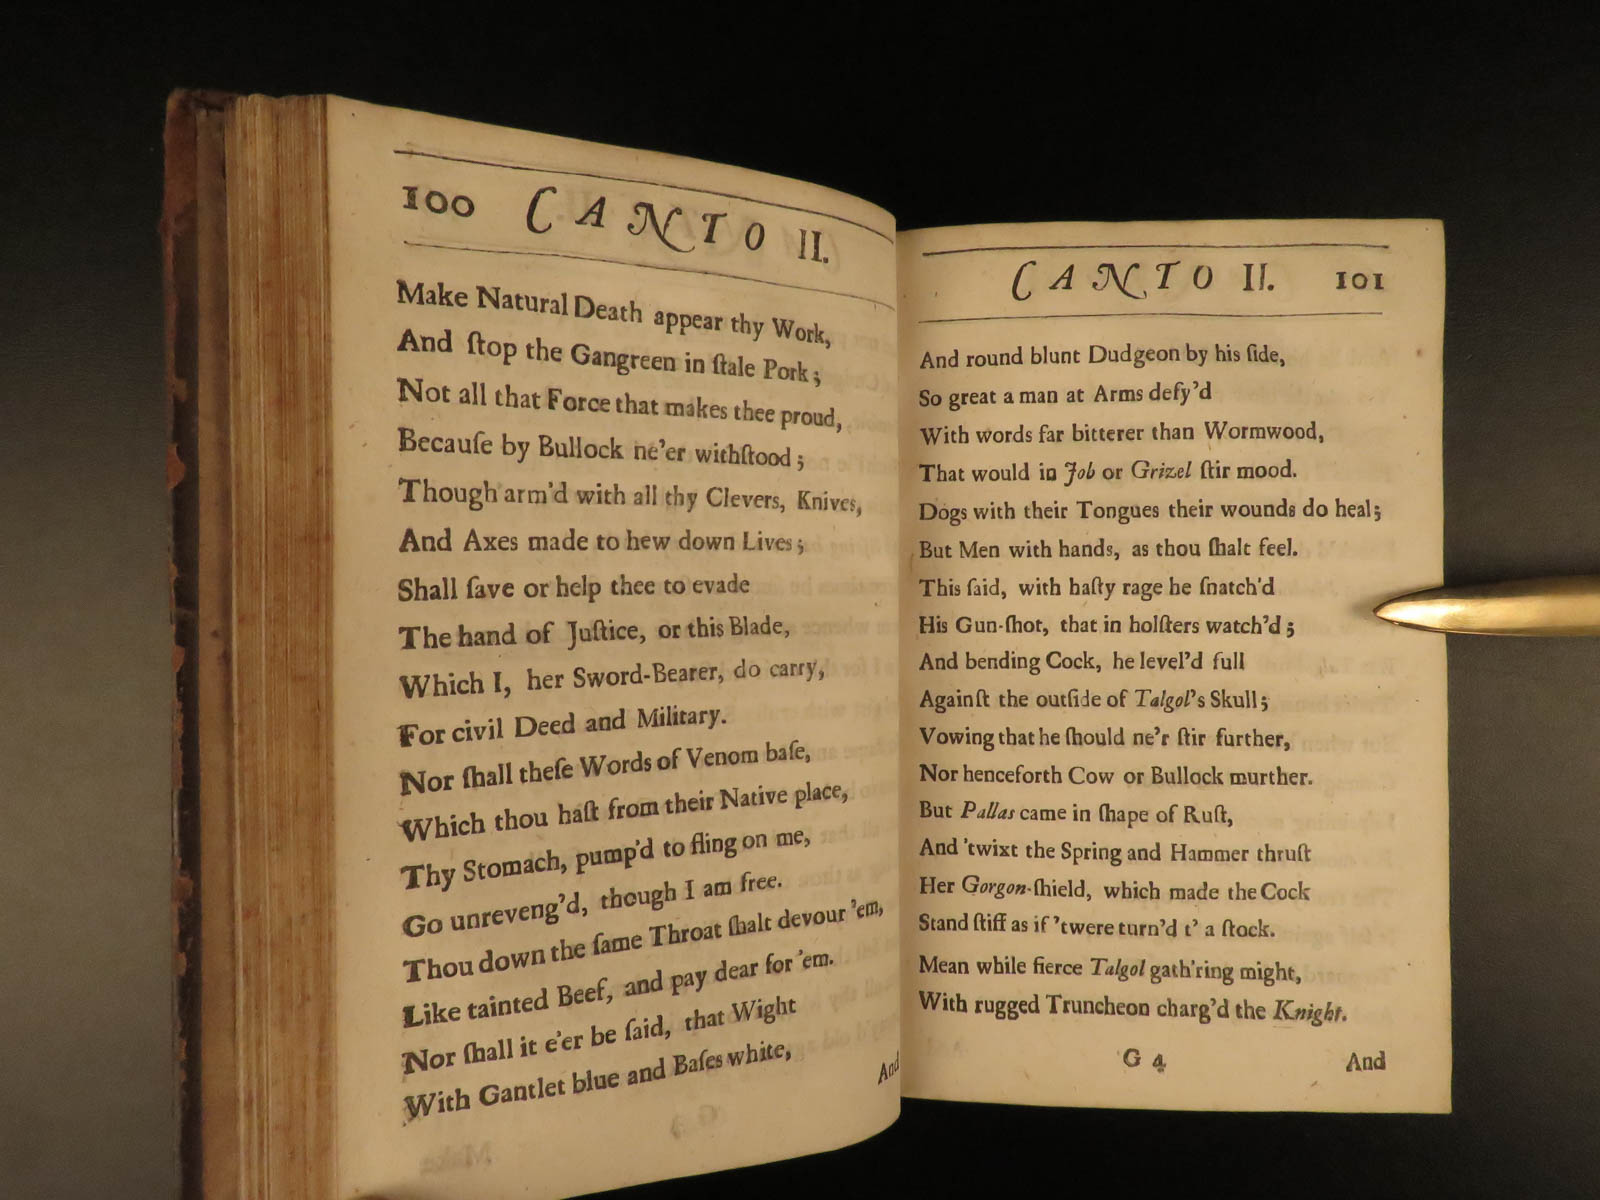 100 CANTO II.
Make Natural Death appear thy Work,
And ſtop the Gangreen in ſtale Pork;
Not all that Force that makes thee proud,
Becauſe by Bullock ne'er withſtood;
Though arm'd with all thy Clevers, Knives,
And Axes made to hew down Lives;
Shall ſave or help thee to evade
The hand of Juſtice, or this Blade,
Which I, her Sword-Bearer, do carry,
For civil Deed and Military.
Nor ſhall theſe Words of Venom baſe,
Which thou haſt from their Native place,
Thy Stomach, pump'd to fling on me,
Go unreveng'd, though I am free.
Thou down the ſame Throat ſhalt devour 'em,
Like tainted Beef, and pay dear for 'em.
Nor ſhall it e'er be ſaid, that Wight
With Gantlet blue and Baſes white,
And
CANTO II. 101
And round blunt Dudgeon by his ſide,
So great a man at Arms defy'd
With words far bitterer than Wormwood,
That would in Job or Grizel ſtir mood.
Dogs with their Tongues their wounds do heal;
But Men with hands, as thou ſhalt feel.
This ſaid, with haſty rage he ſnatch'd
His Gun-ſhot, that in holſters watch'd;
And bending Cock, he level'd full
Againſt the outſide of Talgol's Skull;
Vowing that he ſhould ne'r ſtir further,
Nor henceforth Cow or Bullock murther.
But Pallas came in ſhape of Ruſt,
And 'twixt the Spring and Hammer thruſt
Her Gorgon-ſhield, which made the Cock
Stand ſtiff as if 'twere turn'd t' a ſtock.
Mean while fierce Talgol gath'ring might,
With rugged Truncheon charg'd the Knight.
G 4 And